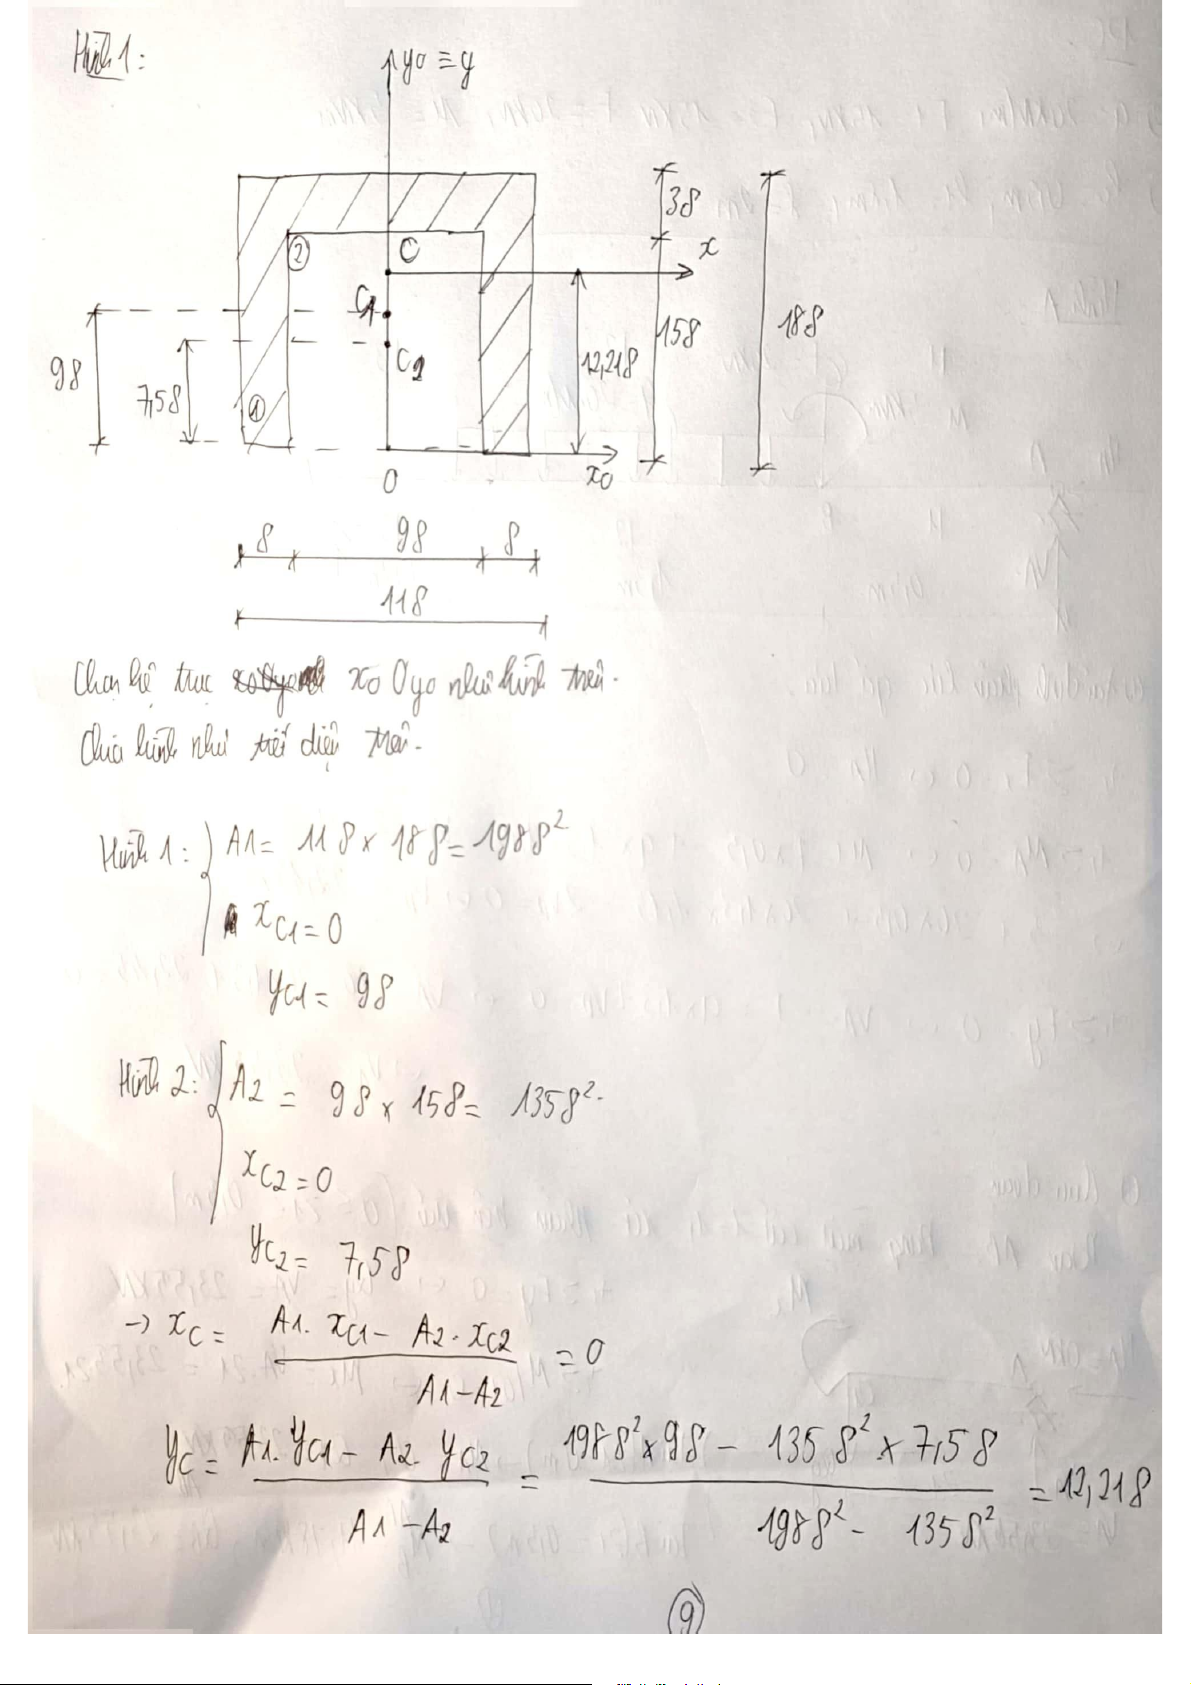 Hình 1:
y0 ≡ y
38
x
②
C
C1
158
188
98
12,218
C2
7,58
①
0
x0
8
98
8
118
Chọn hệ trục x0Oy0 như hình trên.
Chia hình như tiết diện trên.
Hình 1: { A1 = 118 × 188 = 1988²
xC1 = 0
yC1 = 98
Hình 2: { A2 = 98 × 158 = 1358².
xC2 = 0
yC2 = 7,58
→ xC = (A1. xC1 − A2. xC2) / (A1 − A2) = 0
yC = (A1. yC1 − A2. yC2) / (A1 − A2) = (1988² × 98 − 1358² × 7,58) / (1988² − 1358²) = 12,218
⑨